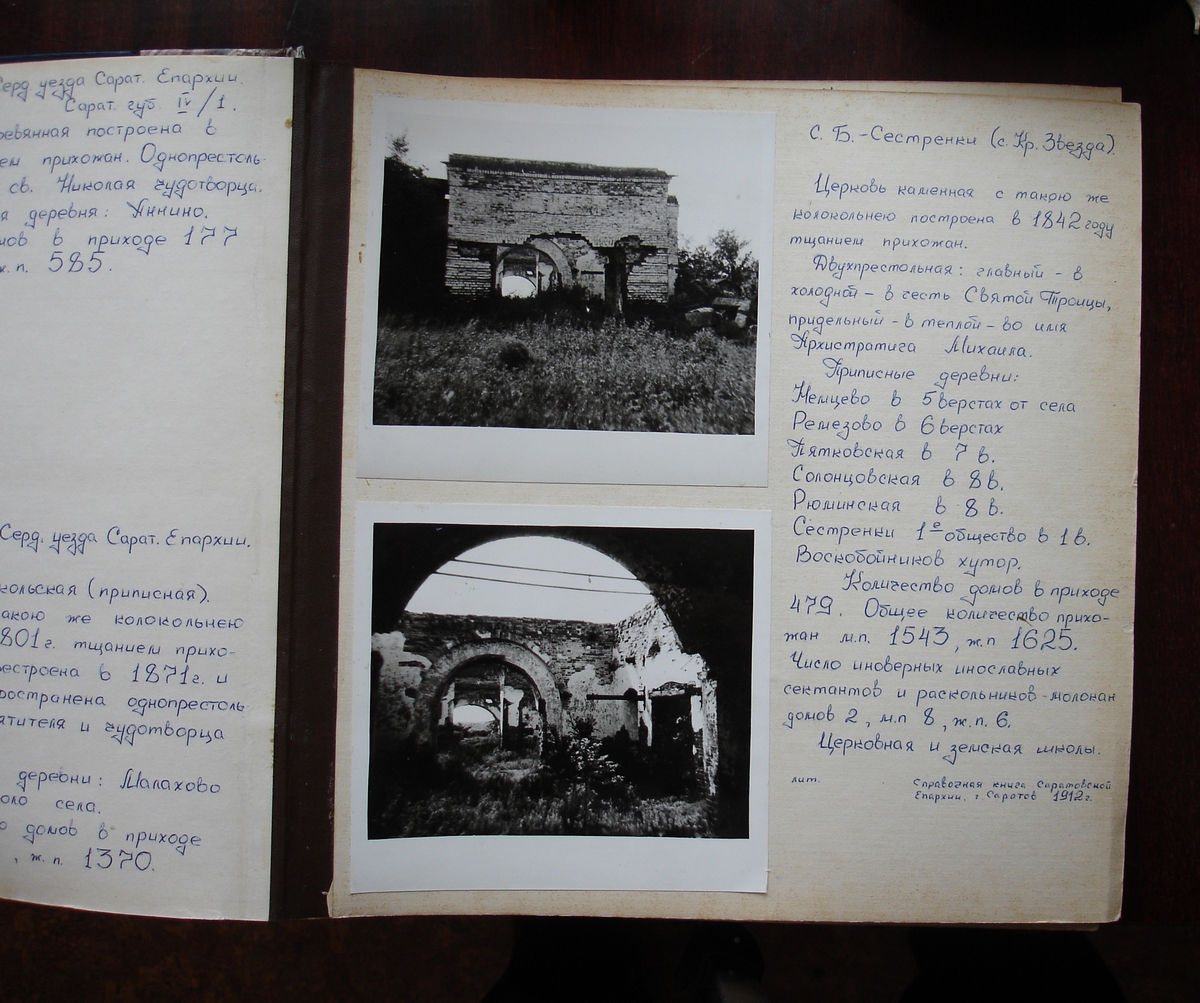 Серд уезда Сарат. Епархии.
Сарат. губ. IV/1.
построена в
прихожан. Однопрестоль-
св. Николая чудотворца.
деревня: Яннино.
в приходе 177
ж.п. 585.
Серд. уезда Сарат. Епархии.
(приписная).
же колокольнею
1801г. тщанием прихо-
в 1871г. и
однопрестоль-
и чудотворца
деревни: Малахово
села.
домов в приходе
, ж.п. 1370.
с. Б.-Сестренки (с. Кр. Звезда).
Церковь каменная с такою же
колокольнею построена в 1842 году
тщанием прихожан.
Двухпрестольная: главный - в
холодной - в честь Святой Троицы,
придельный - в теплой - во имя
Архистратига Михаила.
Приписные деревни:
Немцево в 5 верстах от села
Ремезово в 6 верстах
Пятковская в 7 в.
Солонцовская в 8 в.
Рюминская в 8 в.
Сестренки 1е общество в 1 в.
Воскобойников хутор.
Количество домов в приходе
479. Общее количество прихо-
жан м.п. 1543, ж.п 1625.
Число иноверных инославных
сектантов и раскольников-молокан
домов 2, м.п 8, ж.п. 6.
Церковная и земская школы.
лит. Справочная книга Саратовской
Епархии, г. Саратов 1912г.